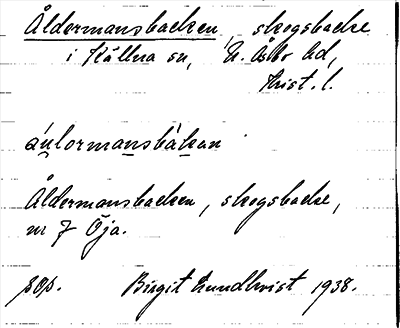 Åldermansbacken, skogsbacke
i Källna sn, N. Åsbo hd,
Krist. l.
aulormansbakan
Åldermansbacken, skogsbacke,
nr 7 Öja.
Birgit Lundkvist 1938.